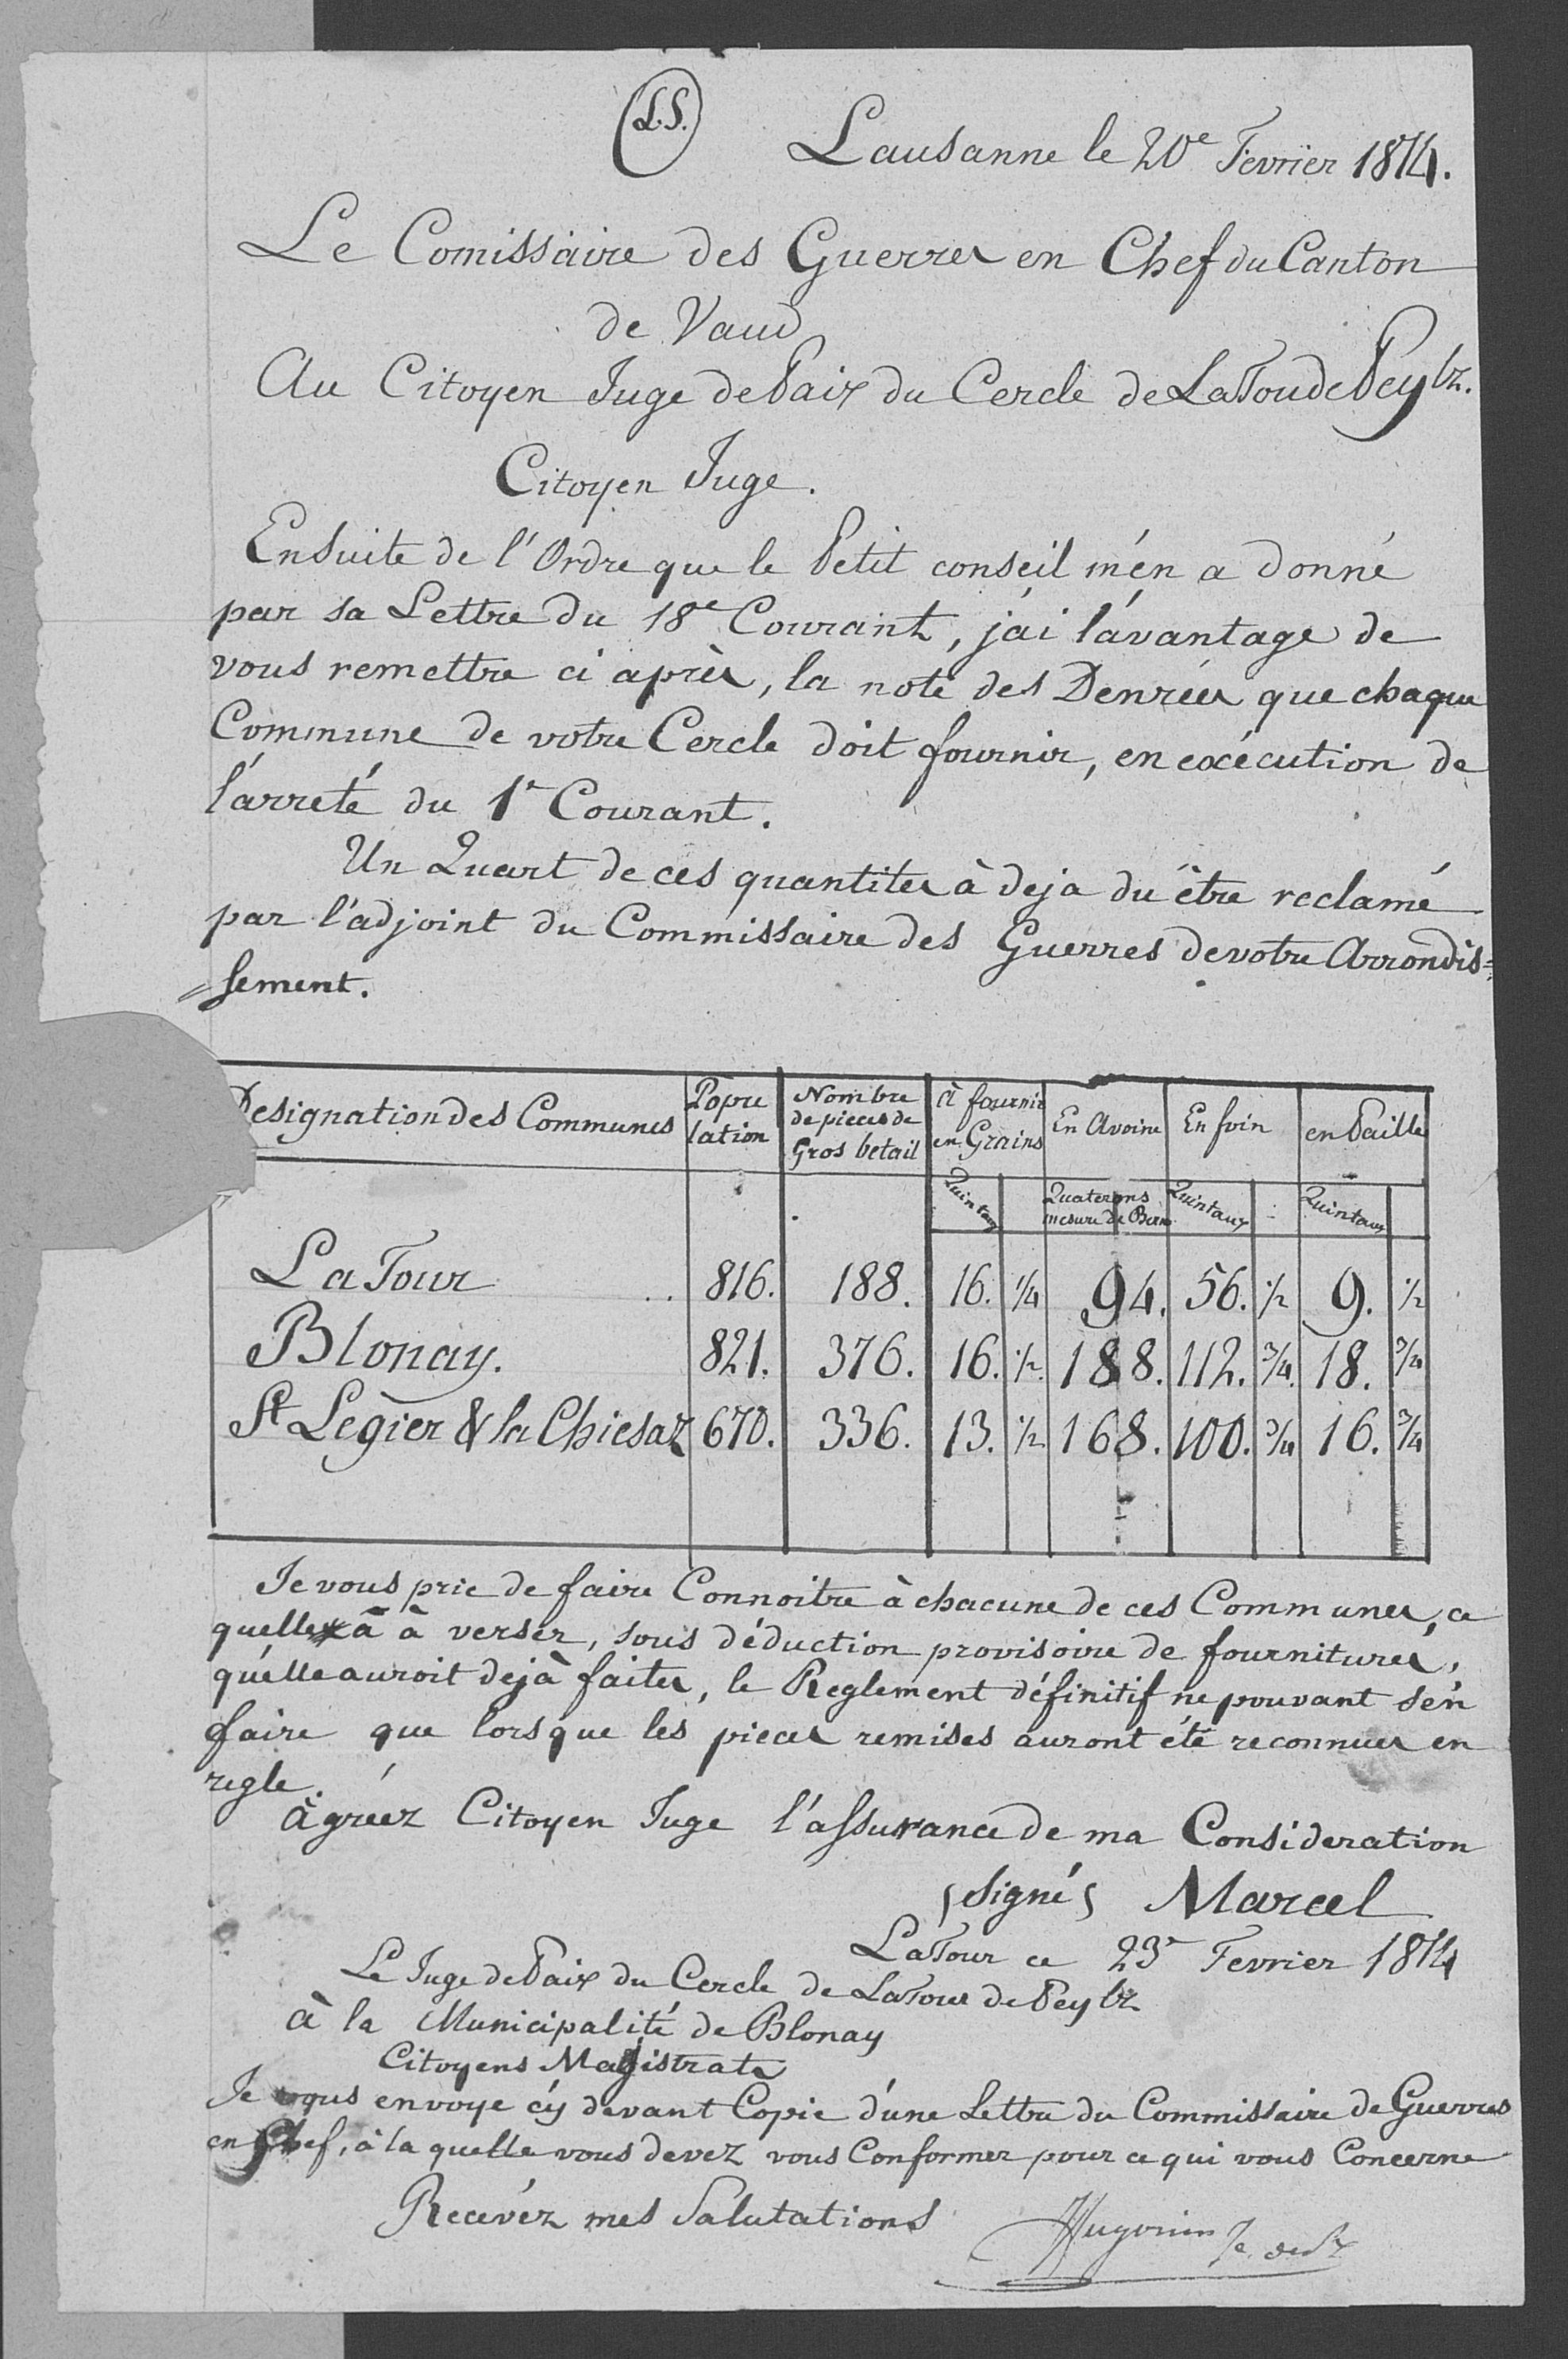 L.S.
Lausanne le 20e Fevrier 1814.
Le Comissaire des Guerres en Chef du Canton
de Vaud
Au Citoyen Juge de Paix du Cercle de La Tour de Peylz.
Citoyen Juge.
Ensuite de l'Ordre que le Petit conseil m'én a donné
par sa Lettre du 18e Courant, j'ai l'avantage de
vous remettre ci après, la note des Denrées que chaque
Commune de votre Cercle doit fournir, en exécution de
l'arreté du 1r Courant.
Un Quart de ces quantites à deja du être reclamé
par l'adjoint du Commissaire des Guerres de votre Arrondis=
=sement.
Designation des Communes | Popu lation | Nombre de pieces de Gros betail | à fournir en Grains | En Avoine | En foin | en Paille
Quintaux | Quaterons mesure de Bern | Quintaux | Quintaux
La Tour .. 816. 188. 16. 1/4 94. 56. 1/2 9. 1/2
Blonay. 821. 376. 16. 1/2 188. 112. 3/4 18. 3/4
St Légier & la Chiesaz 670. 336. 13. 1/2 168. 100. 3/4 16. 3/4
Je vous prie de faire Connoitre à chacune de ces Communes, ce
quelle à à verser, sous déduction provisoire de fournitures,
qu'elle auroit dejà faites, le Reglement définitif ne pouvant s'én
faire que lorsque les pieces remises auront été reconnues en
regle.
àgréez Citoyen Juge l'assurance de ma Consideration
(signé) Marcel
La Tour ce 23e Fevrier 1814
Le Juge de Paix du Cercle de La Tour de Peylz
à la Municipalité de Blonay
Citoyens Magistrats
Je vous envoye cÿ devant Copie d'une Lettre du Commissaire de Guerres
en Chef, à la quelle vous devez vous Conformer pour ce qui vous Concerne
Recevéz mes Salutations
Hugonin